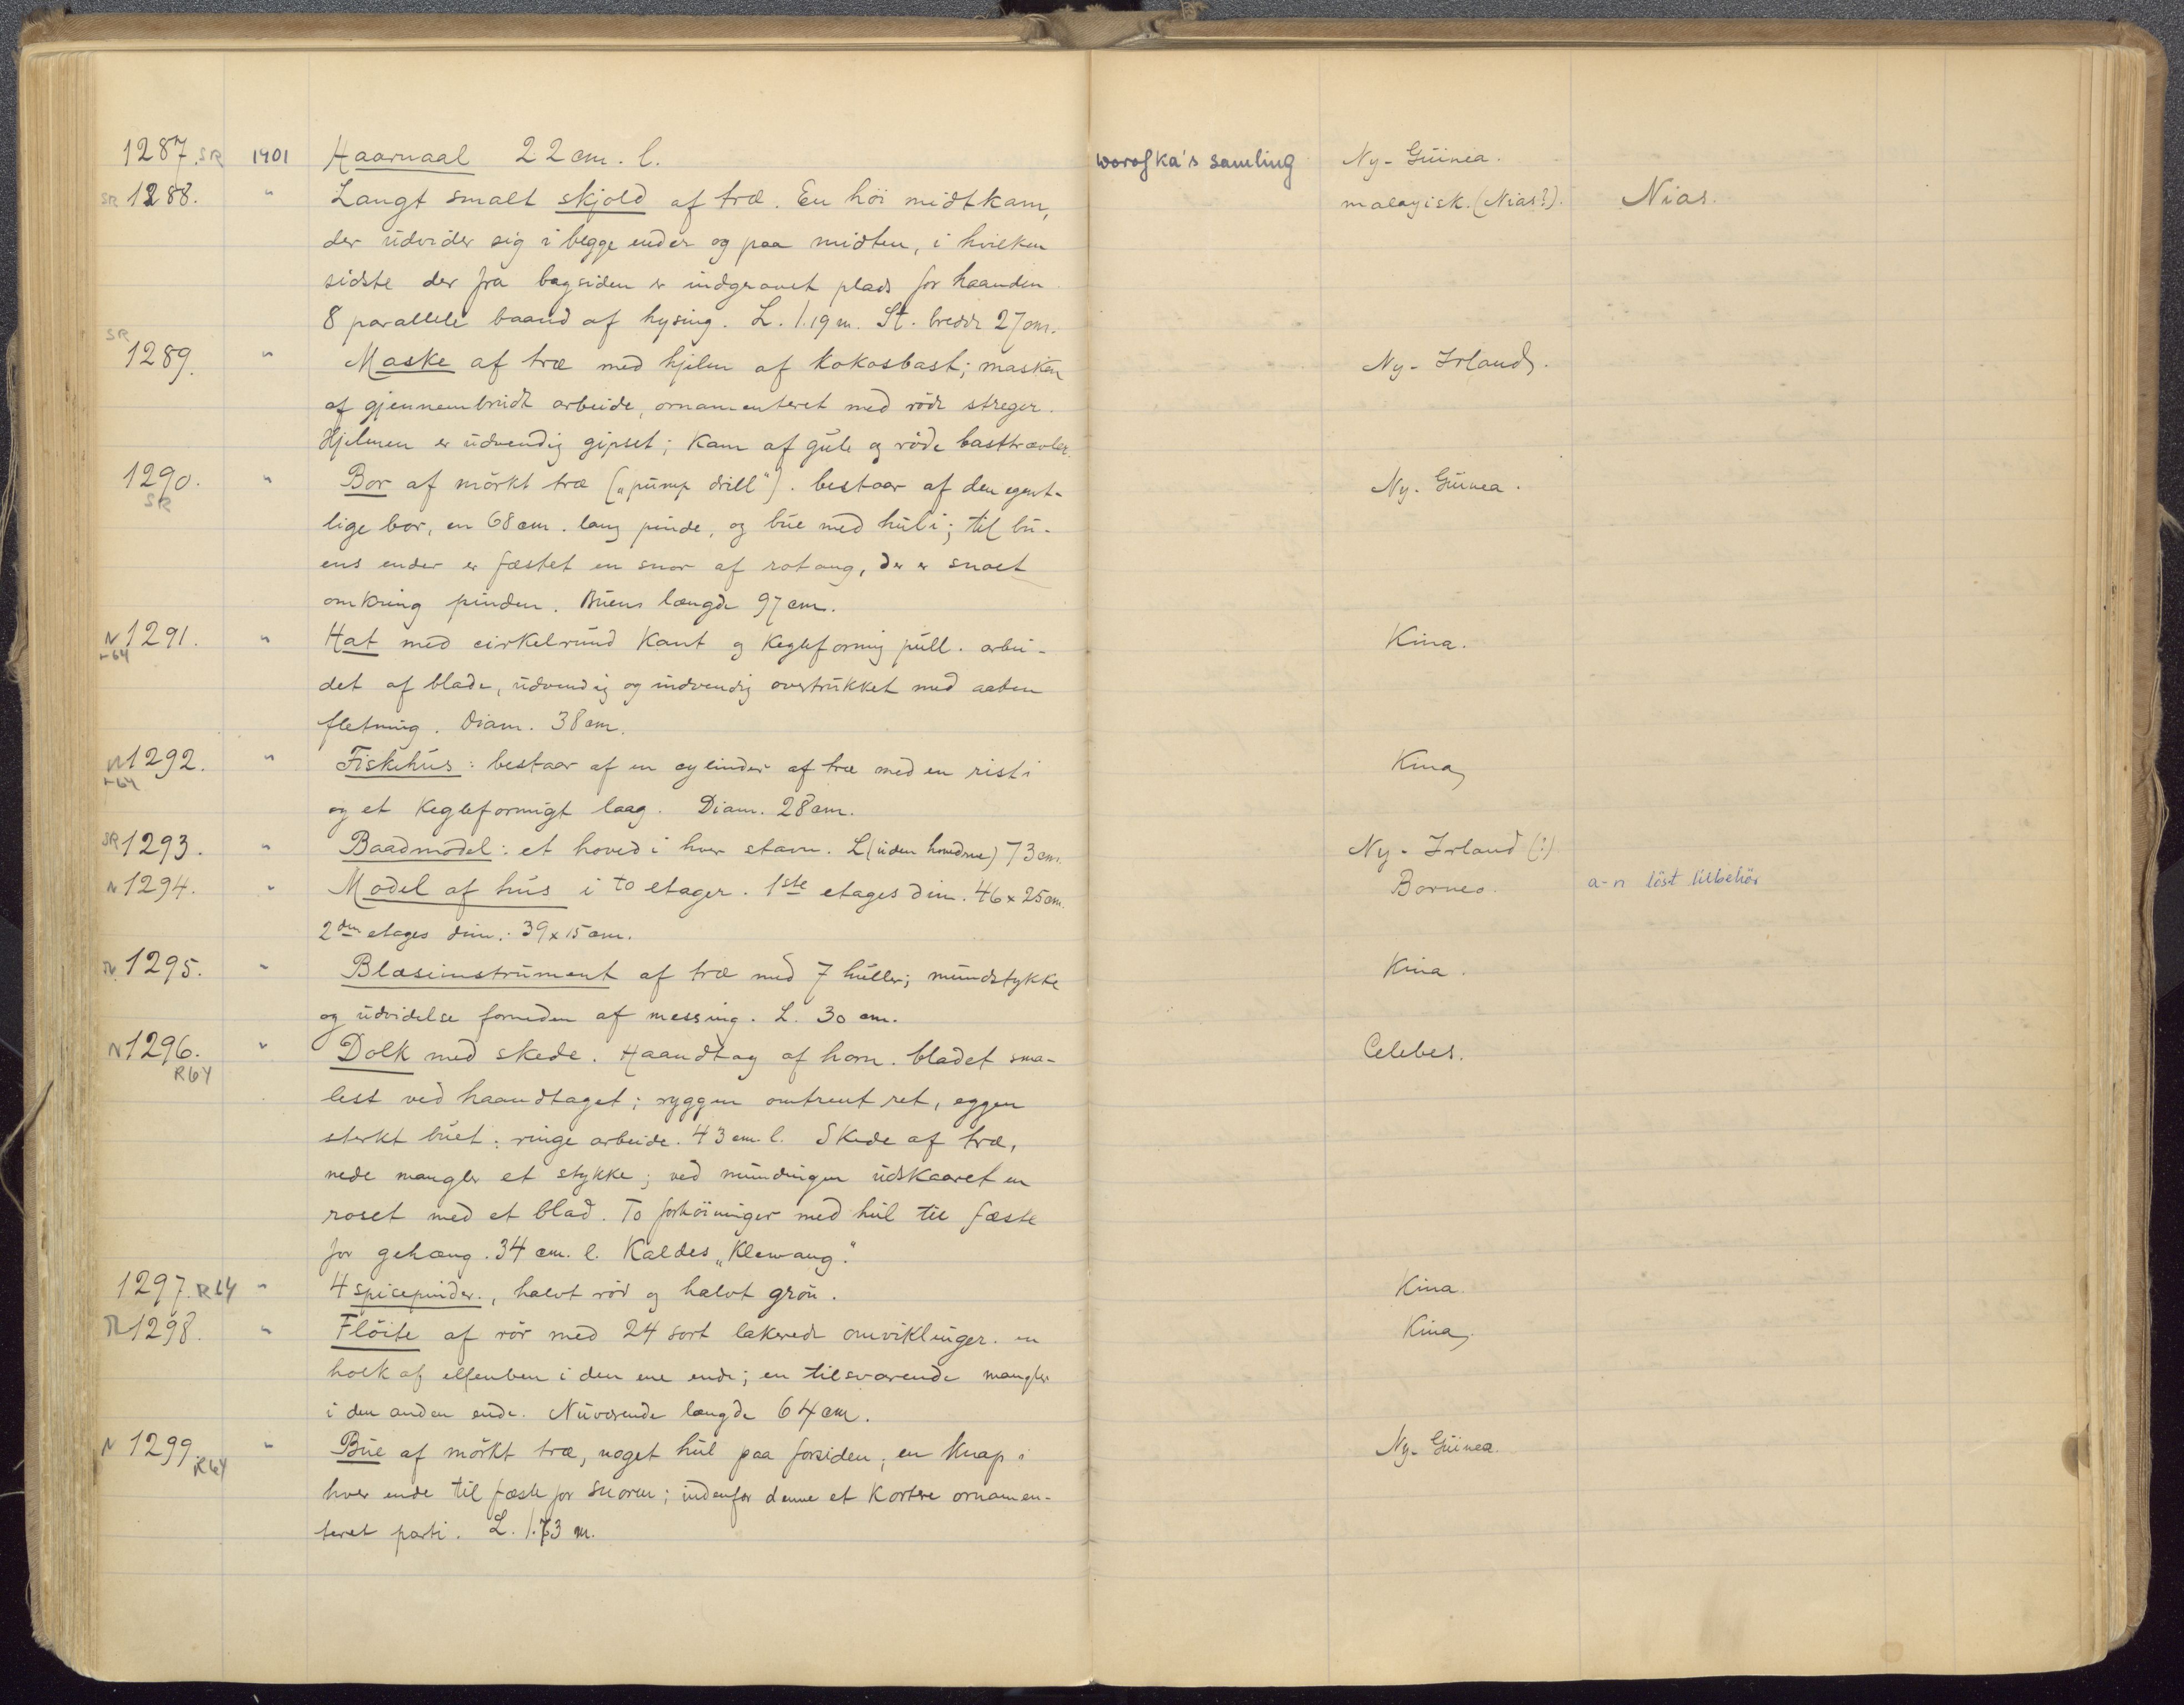 1287. SR 1901 Haarnaal 22 cm. l. worofka's samling Ny-Guinea.
SR 1288. " Langt smalt skjold af træ. En höi midtkam, malayisk. (Nias?). Nias.
der udvider sig i begge ender og paa midten, i hvilken
sidste der fra bagsiden er indgravet plads for haanden
8 parallele baand af hysing. L. 1.19 m. St. bredde 27 cm.
SR 1289. " Maske af træ med hjelm af kokosbast; masken Ny-Irland.
af gjennembrudt arbeide, ornamenteret med röde streger.
Hjelmen er udvendig gipset; Kam af gule og röde basttrævler.
1290. SR " Bor af mörkt træ („pump drill"). bestaar af den egent- Ny-Guinea.
lige bor, en 68 cm. lang pinde, og bue med hul i; til bu-
ens ender er fæstet en snor af rotang, der er snoet
omkring pinden. Buens længde 97 cm.
N 1291. -64 " Hat med cirkelrund Kant og Kegleformig pull. arbei- Kina.
det af blade, udvendig og indvendig overtrukket med aaben
fletning. Diam. 38 cm.
N 1292. -64 " Fiskehus: bestaar af en cylinder af træ med en rist i Kina
og et Kegleformigt laag. Diam. 28 cm.
SR 1293. " Baadmodel: et hoved i hver stavn. L (uden hovederne) 73 cm. Ny-Irland (?)
N 1294. " Model af hus i to etager. 1ste etages dim. 46 x 25 cm. Borneo. a-n löst tilbehör
2den etages dim.: 39 x 15 cm.
N 1295. " Blæseinstrument af træ med 7 huller; mundstykke Kina.
og udvidelse forneden af messing. L. 30 cm.
N 1296. R64 " Dolk med skede. Haandtag af horn. bladet sma- Celebes.
lest ved haandtaget; ryggen omtrent ret, eggen
sterkt buet: ringe arbeide. 43 cm. l. Skede af træ,
nede mangler et stykke; ved mundingen udskaaret en
roset med et blad. To forhöininger med hul til fæste
for gehæng. 34 cm. l. Kaldes „Klewang".
1297. R64 " 4 spisepinder., halvt röd og halvt grön. Kina.
N 1298. " Flöite af rör med 24 sort lakerede omviklinger. en Kina
holk af elfenben i den ene ende; en tilsvarende mangler
i den anden ende. Nuværende længde 64 cm.
N 1299. R64 " Bue af mörkt træ, noget hul paa forsiden; en Knap i Ny-Guinea.
hver ende til fæste for snoren; indenfor denne et Kortere ornamen-
teret parti. L. 1.73 m.